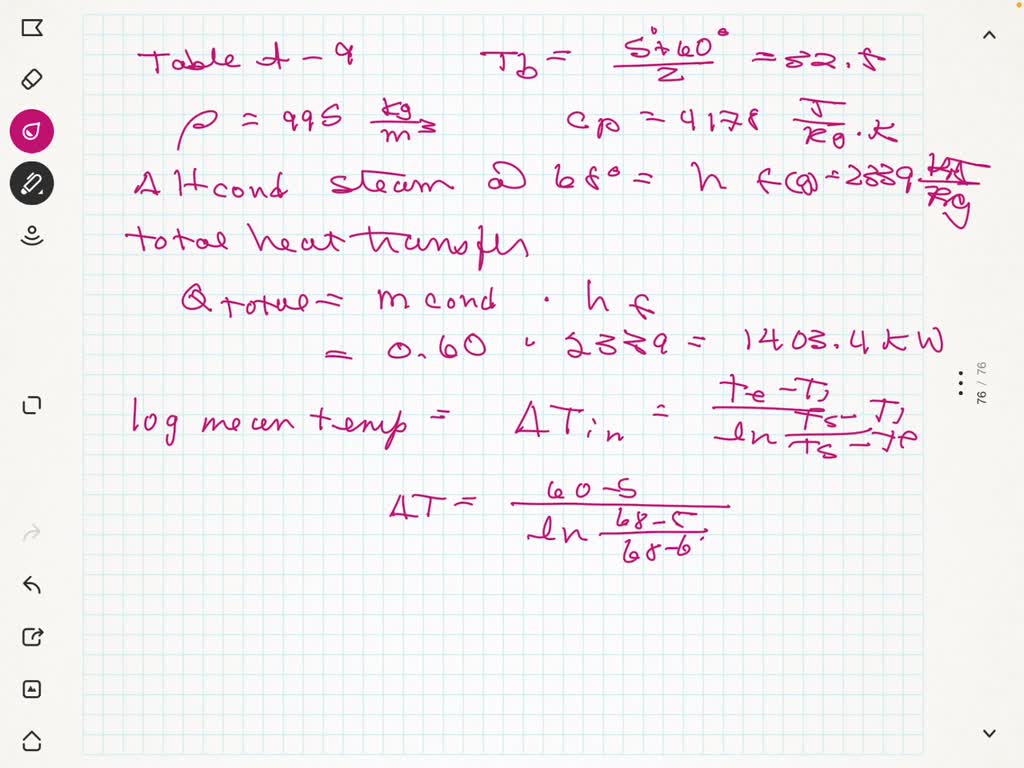 Table A-9 Tb = 5°+60°/2 = 32.5
ρ = 995 kg/m³ cp = 4178 J/kg·K
ΔHcond steam @ 68° = h f(g) = 2339 kJ/kg
total heat transfer
Q total = m cond · h f
= 0.60 · 2339 = 1403.4 kW
log mean temp = ΔTin = Te-Ti / ln Ts-Ti/Ts-Te
ΔT = 60-5 / ln 68-5/68-6
76 / 76